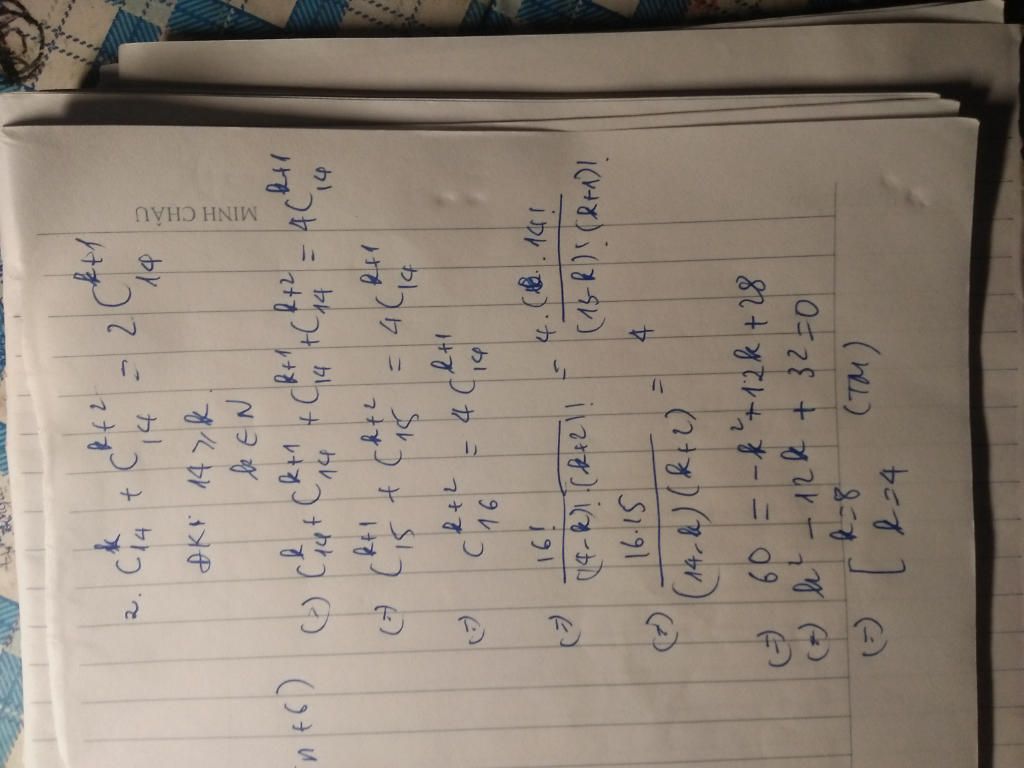 MINH CHÂU
2. C_{14}^{k} + C_{14}^{k+2} = 2 C_{14}^{k+1}
ĐK: 14 ≥ k
k ∈ N
(=) C_{14}^{k} + C_{14}^{k+1} + C_{14}^{k+1} + C_{14}^{k+2} = 4 C_{14}^{k+1}
(=) C_{15}^{k+1} + C_{15}^{k+2} = 4 C_{14}^{k+1}
(=) C_{16}^{k+2} = 4 C_{14}^{k+1}
(=) \frac{16!}{(14-k)!(k+2)!} = 4. \frac{14!}{(13-k)!(k+1)!}
(=) \frac{16.15}{(14-k)(k+2)} = 4
(=) 60 = -k² + 12k + 28
(=) k² - 12k + 32 = 0
(=) [ k=8
k=4 (TM)
n+6)